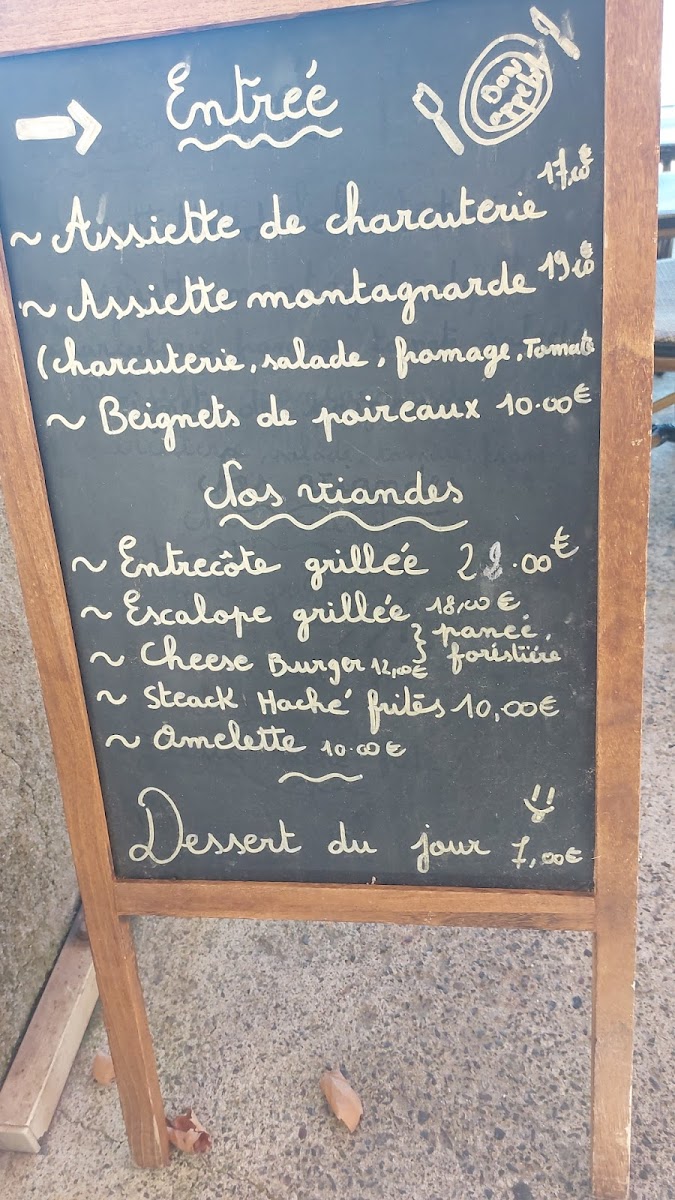 Entrée
Bon appetit
~ Assiette de charcuterie 17,00€
~ Assiette montagnarde 19,00€
(charcuterie, salade, fromage, Tomate
~ Beignets de poireaux 10.00€
Nos viandes
~ Entrecôte grillée 28.00€
~ Escalope grillée 18,00€ } panée,
~ Cheese Burger 12,00€ foréstière
~ Steack Haché frites 10,00€
~ Omelette 10.00€
Dessert du jour 7,00€